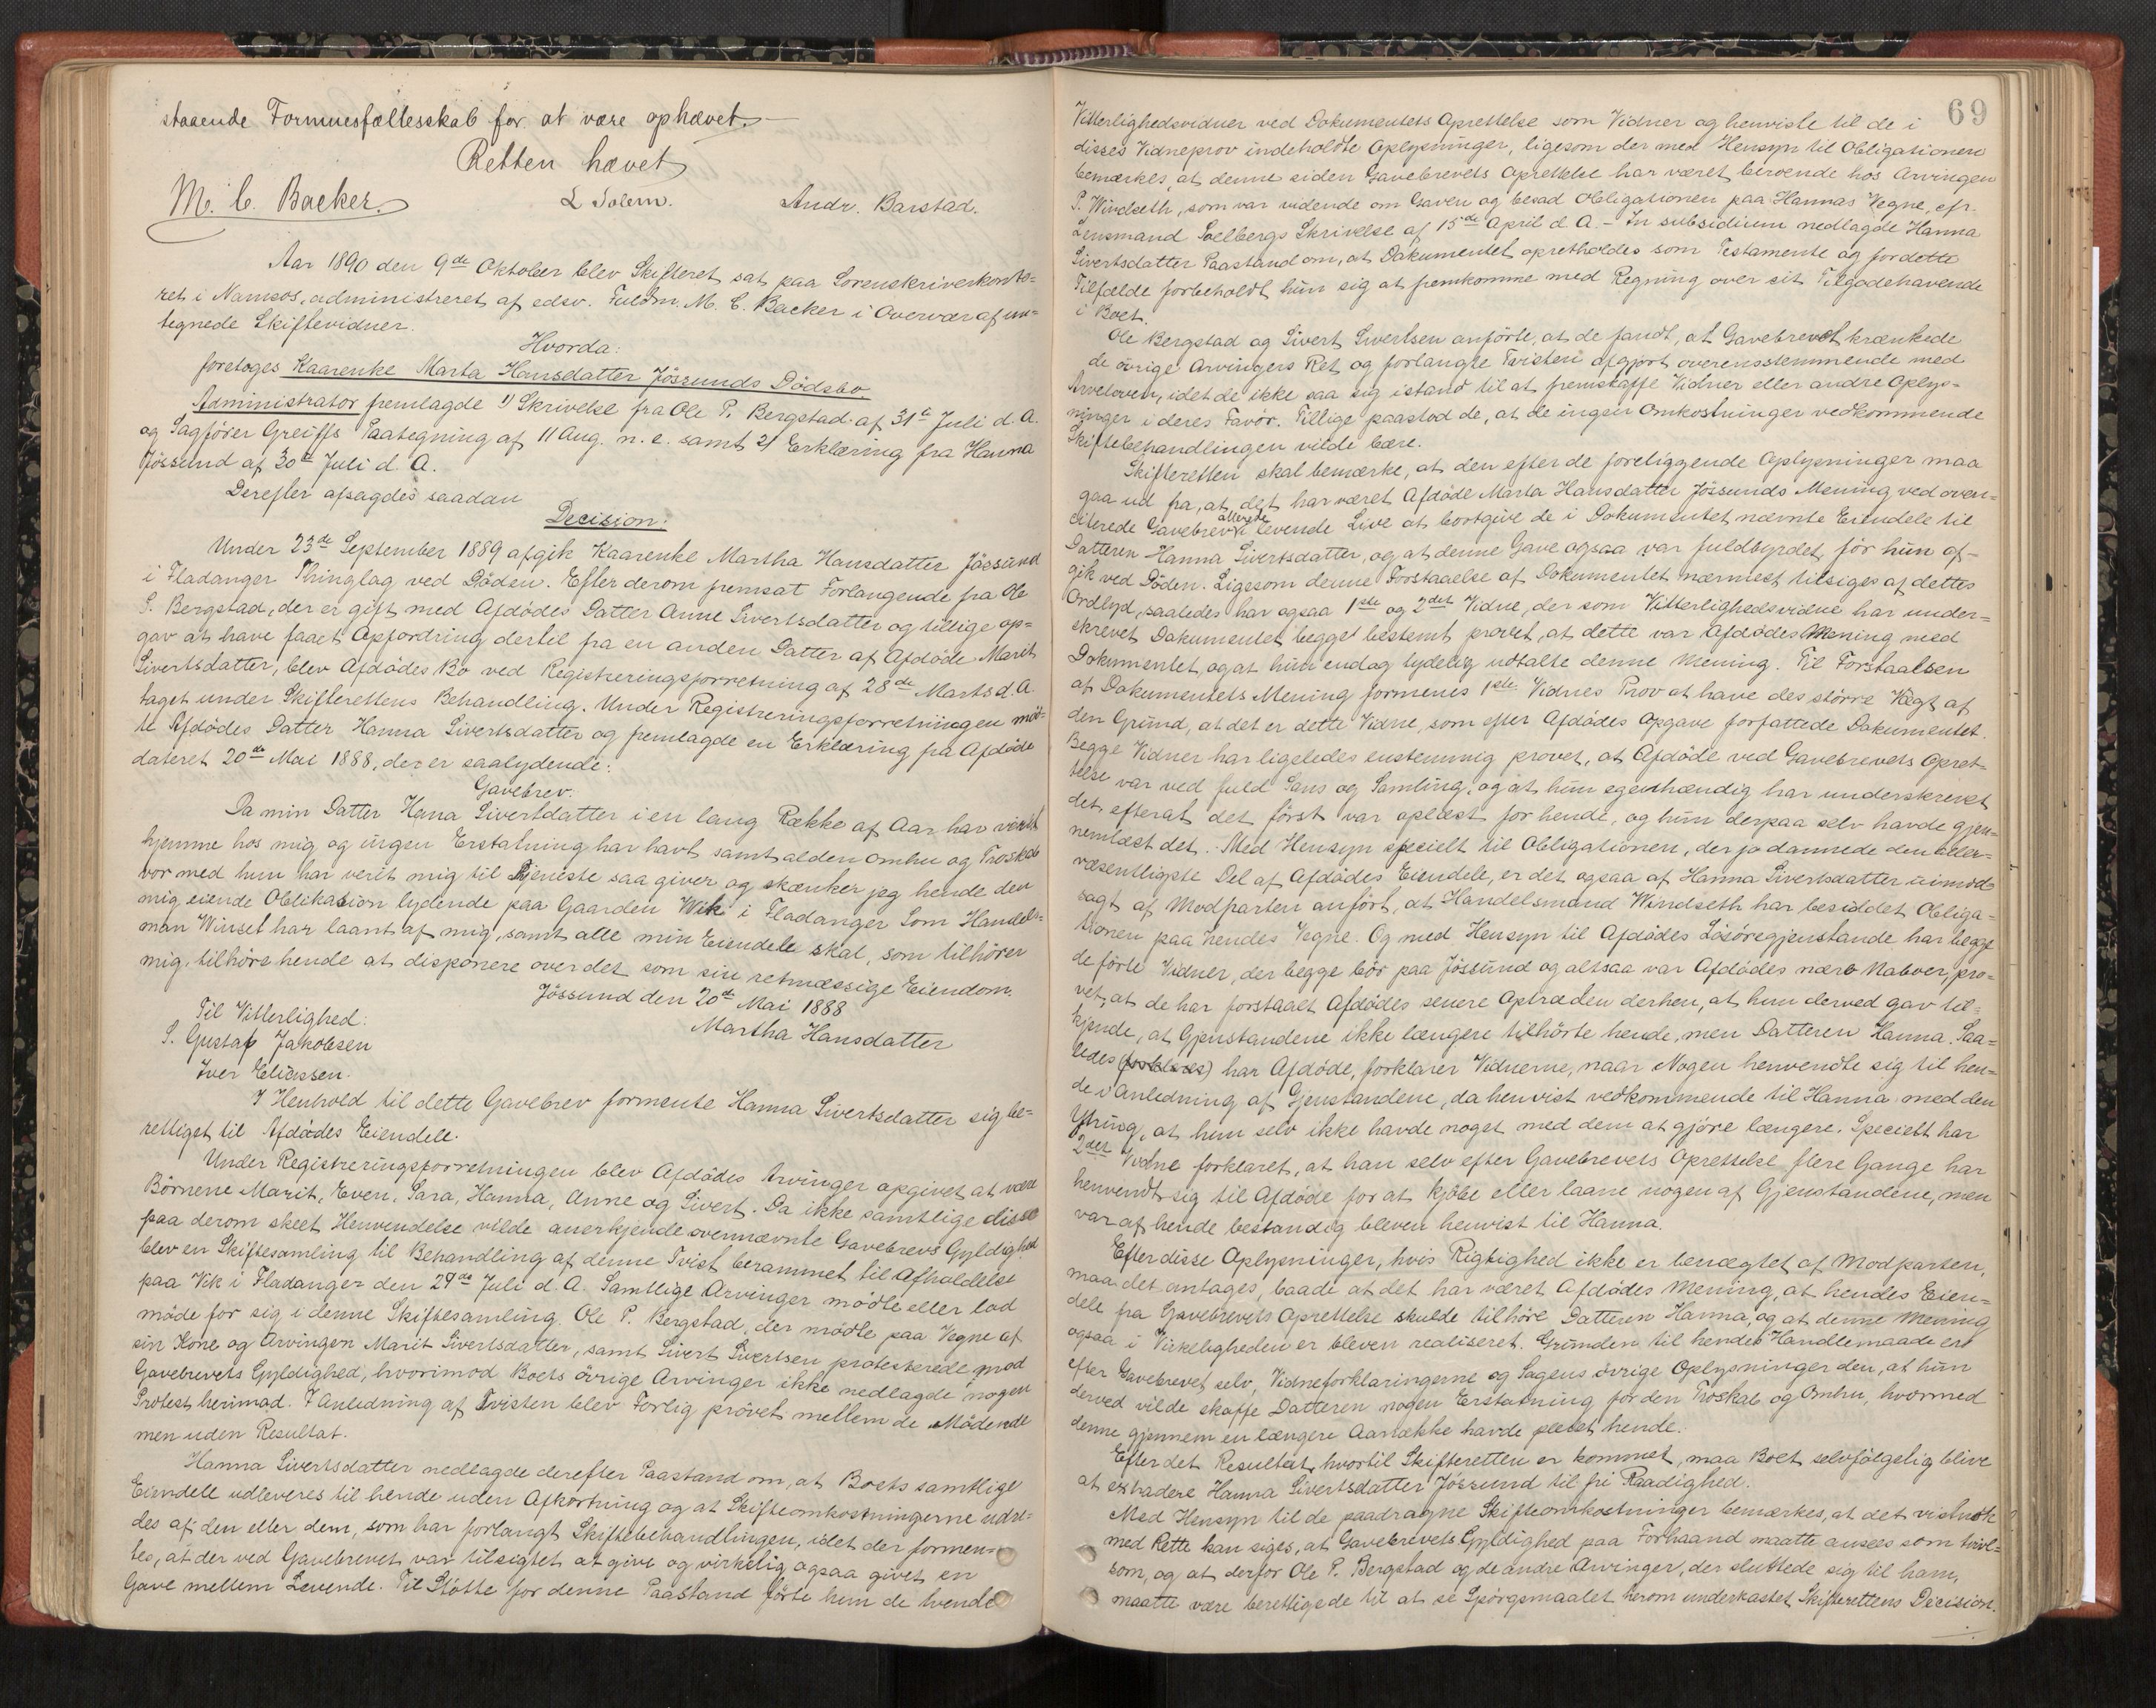 staaende Formuesfællesskab for at være ophævet.
Retten hævet
M. C. Backer.
L Solem.
Andr. Barstad.
Aar 1890 den 9de Oktober blev Skifteret sat paa Sorenskriverkonto-
ret i Namsos, administreret af edsv. Fuldm. M. C. Backer i Overvær af un-
tegnede Skiftevidner.
Hvorda:
foretoges Kaarenke Marta Hansdatter Jössunds Dödsbo.
Administrator fremlagde 1) Skrivelse fra Ole P. Bergstad af 31te Juli d. A.
og Sagförer Greiffs Paategning af 11 Aug. n. e. samt 2) Erklæring fra Hanna
Jössund af 30te Juli d. A.
Derefter afsagdes saadan
Decision:
Under 23de September 1889 afgik Kaarenke Martha Hansdatter Jössund
i Fladanger Thinglag ved Döden. Efter derom fremsat Forlangende fra Ole
P. Bergstad, der er gift med Afdödes Datter Anne Sivertsdatter og tillige op-
gav at have faaet Opfordring dertil fra en anden Datter af Afdöde Marit
Sivertsdatter, blev Afdödes Bo ved Registreringsforretning af 28de Marts d. A.
taget under Skifterettens Behandling. Under Registreringsforretningen möd-
te Afdödes Datter Hanna Sivertsdatter og fremlagde en Erklæring fra Afdöde
dateret 20de Mai 1888, der er saalydende:
Gavebrev:
Da min Datter Hana Sivertdatter i en lang Række af Aar har virket
hjemme hos mig og ingen Erstatning har havt samt alden omhu og Troskab
vor med hun har verit mig til Tjeneste saa giver og skænker jeg hende den
mig eiende Oblikasion lydende paa Gaarden Wik i Fladanger Som Handels-
man Winset har laant af mig, samt alle min Eiendele skal, som tilhörer
mig, tilhöre hende at disponere over det som sin retmæssige Eiendom.
Jössund den 20de Mai 1888
Martha Hansdatter
Til Vitterlighed:
S. Gustaf Jakobsen
Iver Eliassen.
I Henhold til dette Gavebrev formente Hanna Sivertsdatter sig be-
rettiget til Afdödes Eiendele.
Under Registreringsforretningen blev Afdödes Arvinger opgivet at være
Börnene Marit, Even, Sara, Hanna, Anne og Sivert. Da ikke samtlige disse
paa derom skeet Henvendelse vilde anerkjende ovennævnte Gavebrevs Gyldighed
blev en Skiftesamling til Behandling af denne Tvist berammet til Afholdelse
paa Vik i Fladanger den 29de Juli d. A. Samtlige Arvinger mödte eller lod
möde for sig i denne Skiftesamling. Ole P. Bergstad, der mödte paa Vegne af
sin Kone og Arvingen Marit Sivertsdatter, samt Sivert Sivertsen protesterede mod
Gavebrevets Gyldighed, hvorimod Boets övrige Arvinger ikke nedlagde nogen
Protest herimod. I Anledning af Tvisten blev Forlig prövet mellem de Mödende
men uden Resultat.
Hanna Sivertsdatter nedlagde derefter Paastand om, at Boets samtlige
Eiendele udleveres til hende uden Afkortning og at Skifteomkostningerne udre-
des af den eller dem, som har forlangt Skiftebehandlingen, idet der formen-
tes, at der ved Gavebrevet var tilsigtet at give og virkelig ogsaa givet en
Gave mellem Levende. Til Stötte for denne Paastand förte hun de tvende
69
Vitterlighedsvidner ved Dokumentets Oprettelse som Vidner og henviste til de i
disses Vidneprov indeholdte Oplysninger, ligesom der med Hensyn til Obligationen
bemærkes, at denne siden Gavebrevets Oprettelse har været beroende hos Arvingen
P. Windseth, som var vidende om Gaven og besad Obligationen paa Hannas Vegne, cfr.
Lensmand Sælbergs Skrivelse af 15de April d. A. - In subsidium nedlagde Hanna
Sivertsdatter Paastand om, at Dokumentet opretholdes som Testamente og for dette
Tilfælde forbeholdt hun sig at fremkomme med Regning over sit Tilgodehavende
i Boet.
Ole Bergstad og Sivert Sivertsen anförte, at de fandt, at Gavebrevet krænkede
de övrige Arvingers Ret og forlangte Tvisten afgjort overensstemmende med
Arveloven, idet de ikke saa sig istand til at fremskaffe Vidner eller andre Oplys-
ninger i deres Favör. Tillige paastod de, at de ingen Omkostninger vedkommende
Skiftebehandlingen vilde bære.
Skifteretten skal bemærke, at den efter de foreliggende Oplysninger maa
gaa ud fra, at det har været Afdöde Marta Hansdatter Jössunds Mening ved oven-
citerede Gavebrev allerede i levende Live at bortgive de i Dokumentet nævnte Eiendele til
Datteren Hanna Sivertsdatter, og at denne Gave ogsaa var fuldbyrdet, för hun af-
gik ved Döden. Ligesom denne Forstaaelse af Dokumentet nærmest tilsiges af dettes
Ordlyd, saaledes har ogsaa 1ste og 2det Vidne, der som Vitterlighedsvidne har under-
skrevet Dokumentet begge bestemt provet, at dette var Afdödes Mening med
Dokumentet, og at hun endog tydelig udtalte denne Mening. Til Forstaaelsen
af Dokumentets Mening formenes 1ste Vidnes Prov at have des större Vægt af
den Grund, at det er dette Vidne, som efter Afdödes Opgave forfattede Dokumentet.
Begge Vidner har ligeledes enstemmig provet, at Afdöde ved Gavebrevets Opret-
telse var ved fuld Sans og Samling, og at hun egenhændig har underskrevet
det efterat det först var oplæst for hende, og hun derpaa selv havde gjen-
nemlæst det. Med Hensyn specielt til Obligationen, der jo dannede den aller-
væsentligste Del af Afdödes Eiendele, er det ogsaa af Hanna Sivertsdatter uimod-
sagt af Modparten anfört, at Handelsmand Windseth har besiddet Obliga-
tionen paa hendes Vegne. Og med Hensyn til Afdödes Lösöregjenstande har begge
de förte Vidner, der begge bor paa Jössund og altsaa var Afdödes nære Naboer, pro-
vet, at de har forstaaet Afdödes senere Optræden derhen, at hun derved gav til-
kjende, at Gjenstandene ikke længere tilhörte hende, men Datteren Hanna. Saa-
ledes (forklares) har Afdöde, forklarer Vidnerne, naar Nogen henvendte sig til hen-
de i Anledning af Gjenstandene, da henvist vedkommende til Hanna med den
Ytring, at hun selv ikke havde noget med dem at gjöre længere. Specielt har
2det Vidne forklaret, at han selv efter Gavebrevets Oprettelse flere Gange har
henvendt sig til Afdöde for at kjöbe eller laane nogen af Gjenstandene, men
var af hende bestandig bleven henvist til Hanna.
Efter disse Oplysninger, hvis Rigtighed ikke er benægtet af Modparten,
maa det antages, baade at det har været Afdödes Mening, at hendes Eien-
dele fra Gavebrevets Oprettelse skulde tilhöre Datteren Hanna, og at denne Mening
ogsaa i Virkeligheden er bleven realiseret. Grunden til hendes Handlemaade er
efter Gavebrevet selv, Vidneforklaringerne og Sagens övrige Oplysninger den, at hun
derved vilde skaffe Datteren nogen Erstatning for den Troskab og Omhu, hvormed
denne gjennem en længere Aarrække havde pleiet hende.
Efter det Resultat, hvortil Skifteretten er kommet, maa Boet selvfölgelig blive
at extradere Hanna Sivertsdatter Jössund til fri Raadighed.
Med Hensyn til de paadragne Skifteomkostninger bemærkes, at det vistnok
med Rette kan siges, at Gavebrevets Gyldighed paa Forhaand maatte ansees som tvivl-
som, og at derfor Ole P. Bergstad og de andre Arvinger, der sluttede sig til ham,
maatte være berettigede til at se Spörgsmaalet herom underkastet Skifterettens Decision.